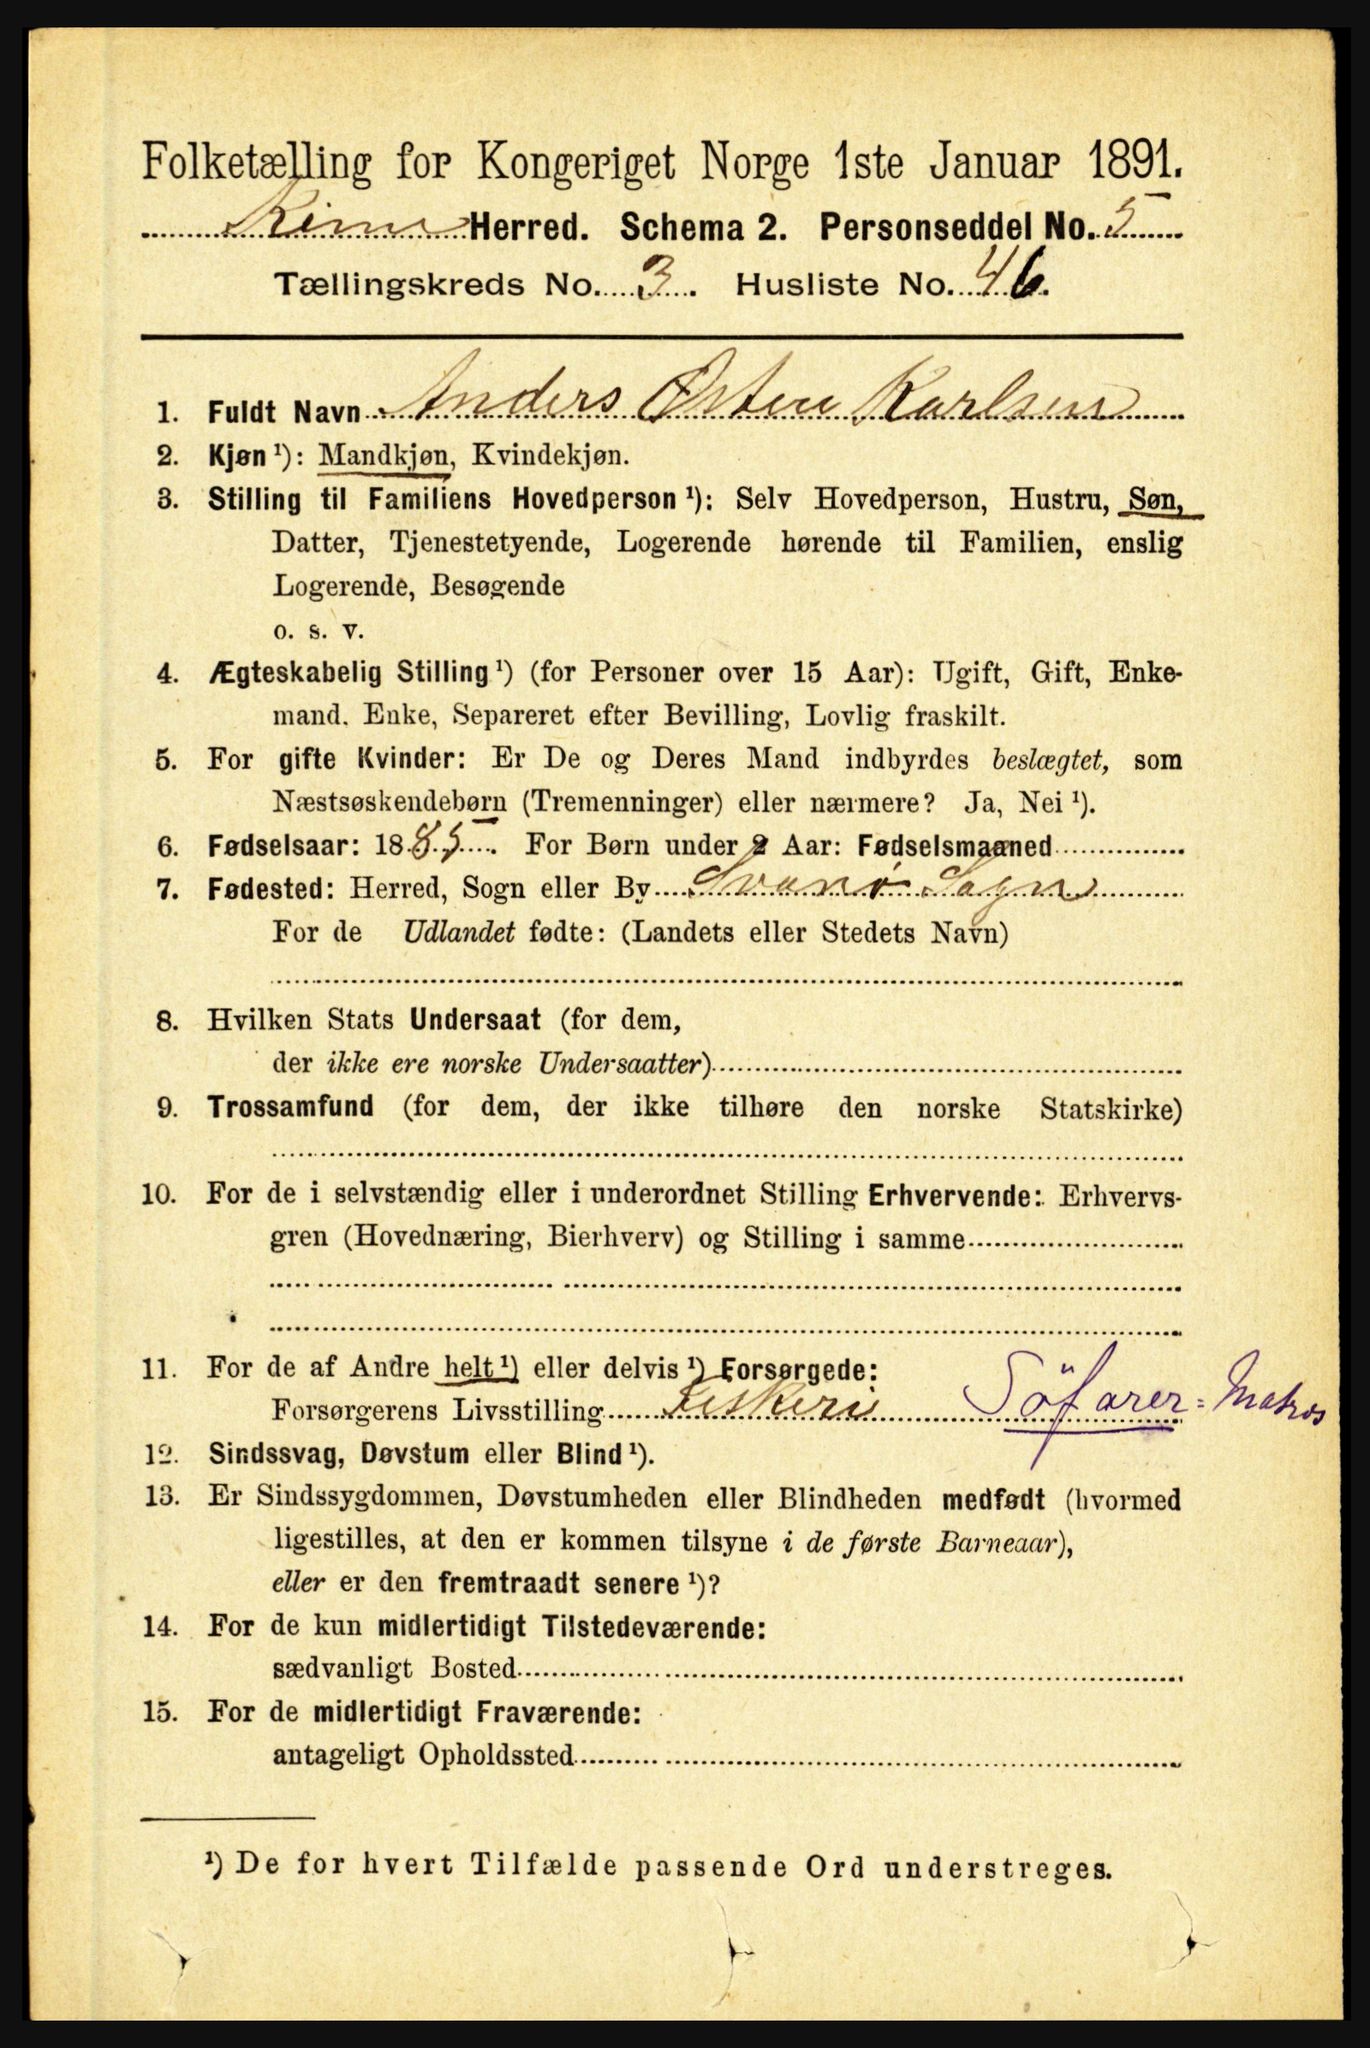 Folketælling for Kongeriget Norge 1ste Januar 1891.
Kinn Herred. Schema 2. Personseddel No. 5
Tællingskreds No. 3. Husliste No. 46.
1. Fuldt Navn Anders Østen Karlsen
2. Kjøn ¹): Mandkjøn, Kvindekjøn.
3. Stilling til Familiens Hovedperson ¹): Selv Hovedperson, Hustru, Søn,
Datter, Tjenestetyende, Logerende hørende til Familien, enslig
Logerende, Besøgende
o. s. v.
4. Ægteskabelig Stilling ¹) (for Personer over 15 Aar): Ugift, Gift, Enke-
mand, Enke, Separeret efter Bevilling, Lovlig fraskilt.
5. For gifte Kvinder: Er De og Deres Mand indbyrdes beslægtet, som
Næstsøskendebørn (Tremenninger) eller nærmere? Ja, Nei ¹).
6. Fødselsaar: 1885. For Børn under 2 Aar: Fødselsmaaned
7. Fødested: Herred, Sogn eller By Svanø Sogn
For de Udlandet fødte: (Landets eller Stedets Navn)
8. Hvilken Stats Undersaat (for dem,
der ikke ere norske Undersaatter)
9. Trossamfund (for dem, der ikke tilhøre den norske Statskirke)
10. For de i selvstændig eller i underordnet Stilling Erhvervende: Erhvervs-
gren (Hovednæring, Bierhverv) og Stilling i samme
11. For de af Andre helt ¹) eller delvis ¹) Forsørgede:
Forsørgerens Livsstilling Fiskeri Söfarer = Matros
12. Sindssvag, Døvstum eller Blind ¹).
13. Er Sindssygdommen, Døvstumheden eller Blindheden medfødt (hvormed
ligestilles, at den er kommen tilsyne i de første Barneaar),
eller er den fremtraadt senere ¹)?
14. For de kun midlertidigt Tilstedeværende:
sædvanligt Bosted
15. For de midlertidigt Fraværende:
antageligt Opholdssted
¹) De for hvert Tilfælde passende Ord understreges.